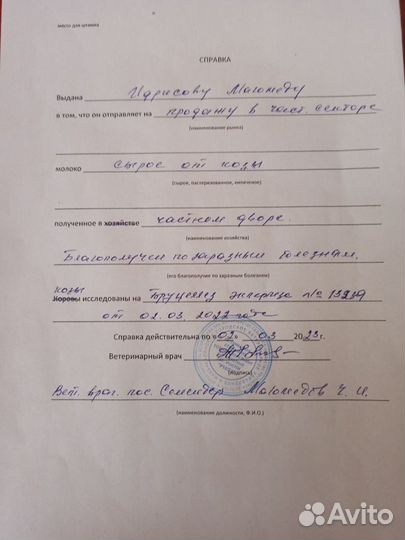 место для штампа
СПРАВКА
Выдана Идрисову Магомеду
в том, что он отправляет на продажу в част. секторе
(наименование рынка)
молоко сырое от козы
(сырое, пастеризованное, кипяченое)
полученное в хозяйстве частном дворе.
(наименование хозяйства)
Благополучен по заразным болезням.
(его благополучие по заразным болезням)
козы
Коровы исследованы на Бруцеллез экспертиза
от 02.03.2022 года
Справка действительна по «02» 03 2023г.
Ветеринарный врач
(подпись)
Вет. врач. пос. Семендер Магомедов Ч. И.
(наименование должности, Ф.И.О.)
Avito